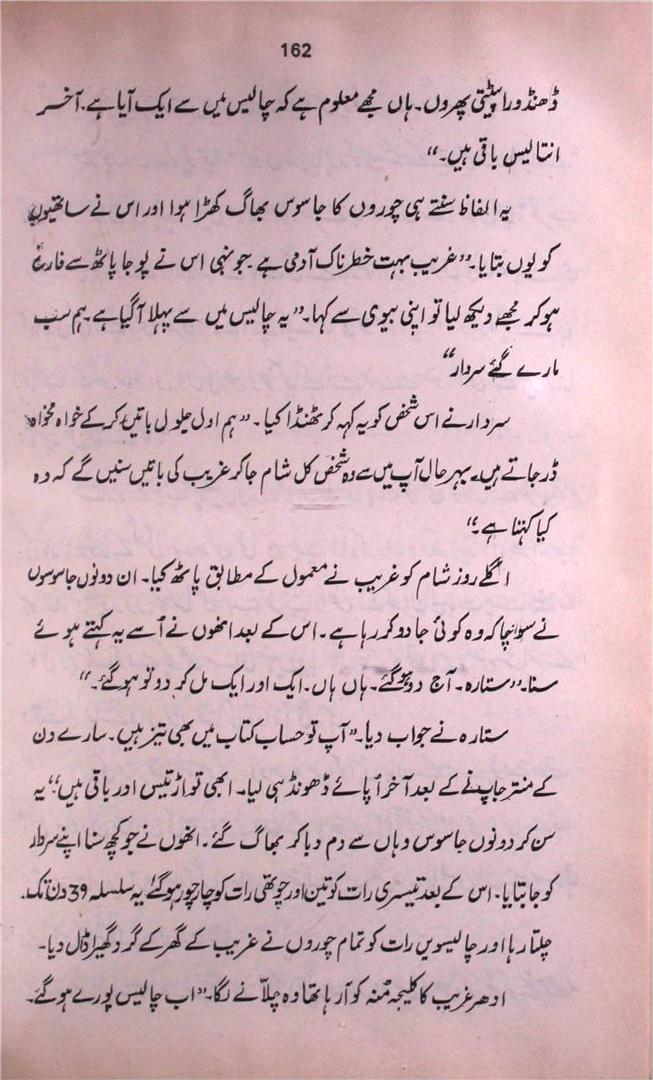 162
ڈھنڈورا پیٹتی پھروں۔ ہاں مجھے معلوم ہے کہ چالیس میں سے ایک آیا ہے۔ آخر
انتالیس باقی ہیں۔“
یہ الفاظ سنتے ہی چوروں کا جاسوس بھاگ کھڑا ہوا اور اس نے ساتھیوں
کو یوں بتایا۔ ”غریب بہت خطرناک آدمی ہے۔ جونہی اس نے پوجا پاٹھ سے فارغ
ہو کر مجھے دیکھ لیا تو اپنی بیوی سے کہا۔ ”یہ چالیس میں سے پہلا آگیا ہے۔ ہم سب
مارے گئے سردار“
سردار نے اس شخص کو یہ کہہ کر ٹھنڈا کیا۔ ”ہم اول جلول باتیں کرکے خواہ مخواہ
ڈر جاتے ہیں۔ بہر حال آپ میں سے دو شخص کل شام جا کر غریب کی باتیں سنیں گے کہ وہ
کیا کہتا ہے۔“
اگلے روز شام کو غریب نے معمول کے مطابق پاٹھ کیا۔ ان دونوں جاسوسوں
نے سوچا کہ وہ کوئی جادو کر رہا ہے۔ اس کے بعد انھوں نے اُسے یہ کہتے ہوئے
سنا۔ ”ستارہ۔ آج دو ہوگئے۔ ہاں ہاں۔ ایک اور ایک مل کر دو تو ہوگئے۔“
ستارہ نے جواب دیا۔ ”آپ تو حساب کتاب میں بھی تیز ہیں۔ سارے دن
کے منتر جاپنے کے بعد آخر اُپائے ڈھونڈ ہی لیا۔ ابھی تو اڑتیس اور باقی ہیں“۔ یہ
سن کر دونوں جاسوس وہاں سے دم دبا کر بھاگ گئے۔ انھوں نے جو کچھ سنا اپنے سردار
کو جا بتایا۔ اس کے بعد تیسری رات کو تین اور چوتھی رات کو چار چور ہوگئے یہ سلسلہ 39 دن تک
چلتا رہا اور چالیسویں رات کو تمام چوروں نے غریب کے گھر کے گرد گھیرا ڈال دیا۔
ادھر غریب کا کلیجہ مُنہ کو آرہا تھا وہ چلّانے لگا۔ ”اب چالیس پورے ہوگئے۔